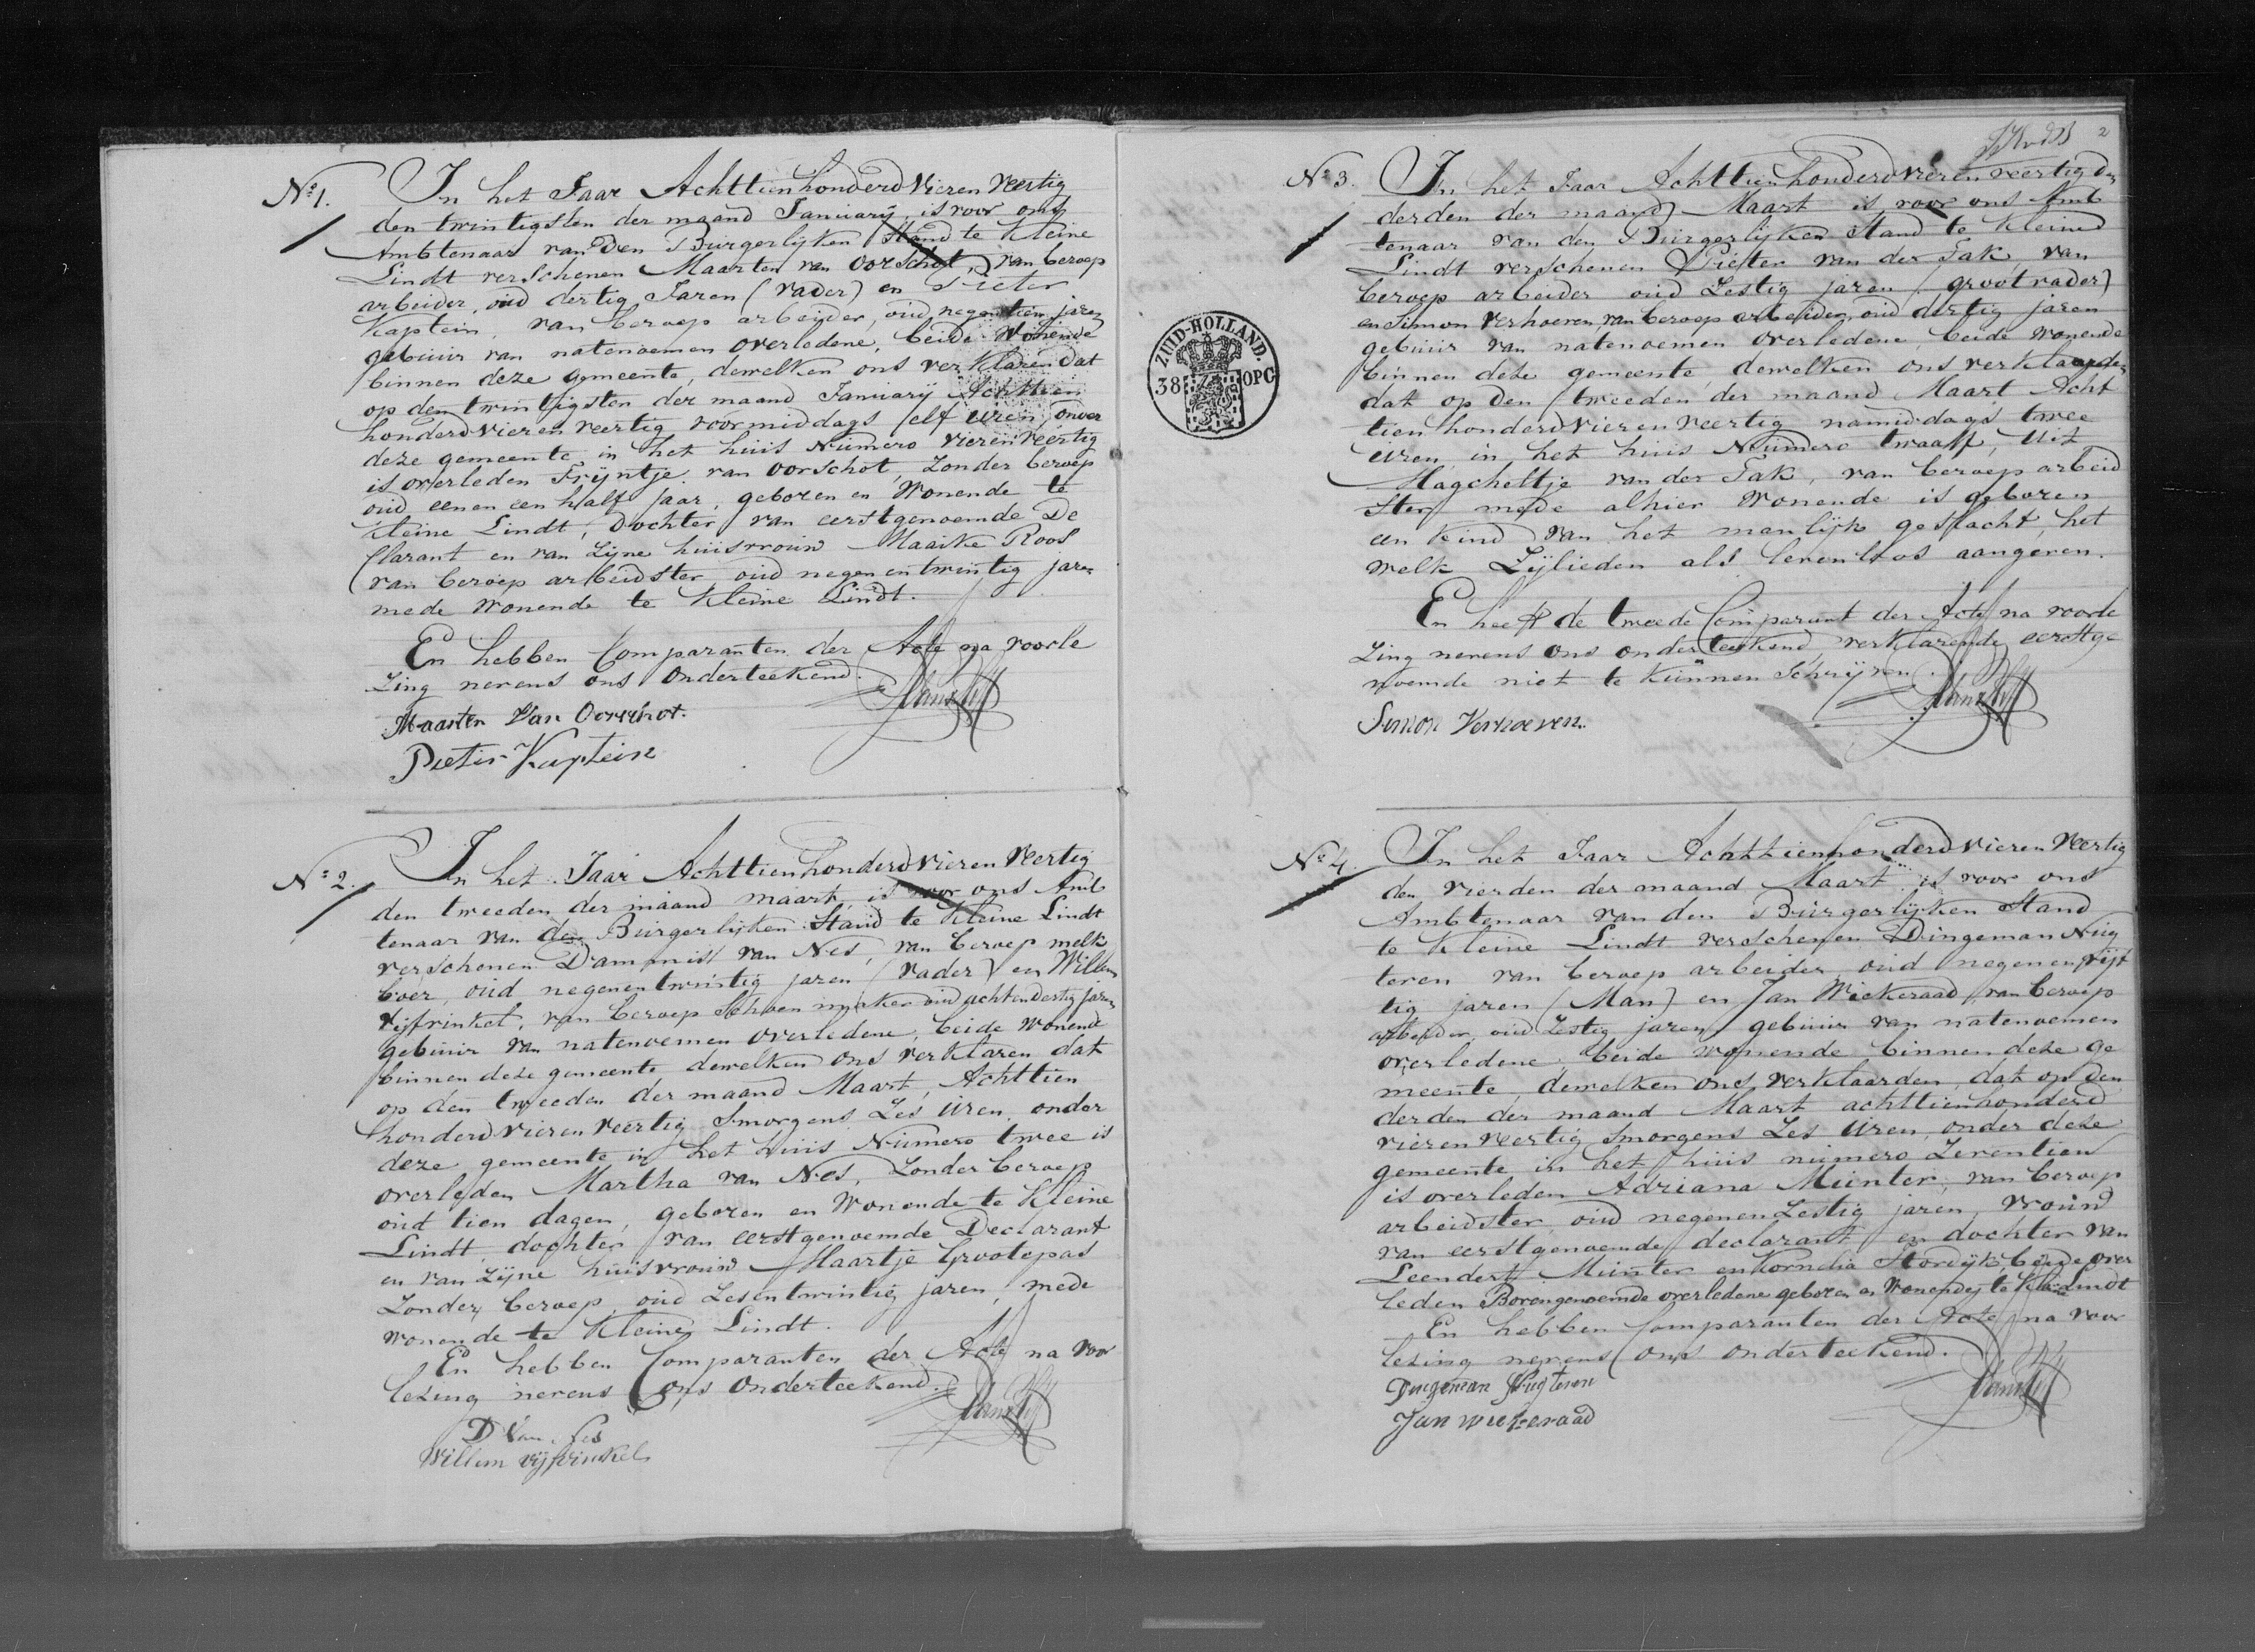 No 1.
In het Jaar Achttienhonderd Vieren Veertig
den twintigsten der maand Januarij, is voor ons
Ambtenaar van den Burgerlijken Stand te Kleine
Lindt verschenen Maarten van Oorschot, van beroep
arbeider, oud dertig Jaren (vader) en Pieter
Kaptein, van beroep arbeider, oud negentien jaren
gebuur van natenoemen Overledene, beide Wonende
binnen deze gemeente, dewelken ons verklaren dat
op den twintigsten der maand Januarij Achttien
honderd vieren veertig voormiddags elf uren, onder
deze gemeente in het huis Numero vieren veertig
is overleden Trijntje van Oorschot, Zonder beroep
oud een en een half Jaar, geboren en Wonende te
Kleine Lindt, Dochter van eerstgenoemde De
clarant en van zijne huisvrouw Maaike Roos
van beroep arbeidster, oud negenentwintig jaren
mede Wonende te Kleine Lindt.
En hebben Comparanten der Acte na voorle
zing nevens ons Onderteekend.
Maarten Van Oorschot.
Pieter Kaptein
No 2.
In het Jaar Achttienhonderd Vieren Veertig
den tweeden der maand maart, is voor ons Amb
tenaar van den Burgerlijken Stand te Kleine Lindt
verschenen Dammis van Nes, van beroep melk
boer, oud negenentwintig jaren (vader) en Willem
Vijfvinkel, van beroep Schoenmaker oud achtendertig jaren
gebuur van natenoemen Overledene, beide Wonende
binnen deze gemeente dewelken ons verklaren dat
op den tweeden der maand Maart, Achttien
honderd vieren veertig Smorgens Zes Uren, onder
deze gemeente in het huis Numero twee is
overleden Martha van Nes, Zonder beroep
oud tien dagen, geboren en Wonende te Kleine
Lindt, dochter van eerstgenoemde Declarant
en van Zijne huisvrouw Maartje Grootepas
Zonder beroep, oud Zesentwintig jaren, mede
Wonende te Kleine Lindt.
En hebben Comparanten der Acte na voor
lezing nevens ons Onderteekend.
D Van Nes
Willem Vijfvinkel
2
ZUID-HOLLAND.
38 OPC
No 3.
In het Jaar Achttienhonderd vieren veertig den
derden der maand Maart is voor ons Amb
tenaar van den Burgerlijken Stand te Kleine
Lindt verschenen Pieter van der Tak, van
beroep arbeider oud Zestig jaren (grootvader)
en Simon Verhoeven, van beroep arbeider, oud dertig jaren
gebuur van natenoemen Overledene, beide Wonende
binnen deze gemeente, dewelken ons verklaarden
dat op den tweeden der maand Maart Acht
tien honderd vieren veertig namiddags twee
uren in het huis Numero twaalf, uit
Magcheltje van der Tak, van beroep arbeid
ster mede alhier Wonende is geboren
een kind van het manlijk geslacht, het
welk Zijlieden als levenloos aangeven.
En heeft de tweede Comparant der Acte na voorle
zing nevens ons onderteekend, verklarende eerstge
noemde niet te kunnen Schrijven.
Simon Verhoeven.
No 4.
In het Jaar Achttienhonderd vieren Veertig
den vierden der maand Maart is voor ons
Ambtenaar van den Burgerlijken Stand
te Kleine Lindt verschenen Dingeman Nug
teren van beroep arbeider, oud negenenvijf
tig jaren (Man) en Jan Wiekeraad, van beroep
arbeider, oud Zestig jaren gebuur van natenoemen
overledene, beide wonende binnen deze ge
meente, dewelken ons verklaarden, dat op den
derden der maand Maart achttienhonderd
vieren veertig Smorgens Zes Uren, onder deze
gemeente in het huis numero Zeventien
is overleden Adriana Munter, van beroep
arbeidster, oud negenenZestig jaren, vrouw
van eerstgenoemde declarant en dochter van
Leendert Munter en Kornelia Stordijk, beide over
leden Bovengenoemde overledene geboren en Wonende te Kleine Lindt
En hebben Comparanten der Acte na voor
lezing nevens ons onderteekend.
Dingeman Nugteren
Jan wiekeraad